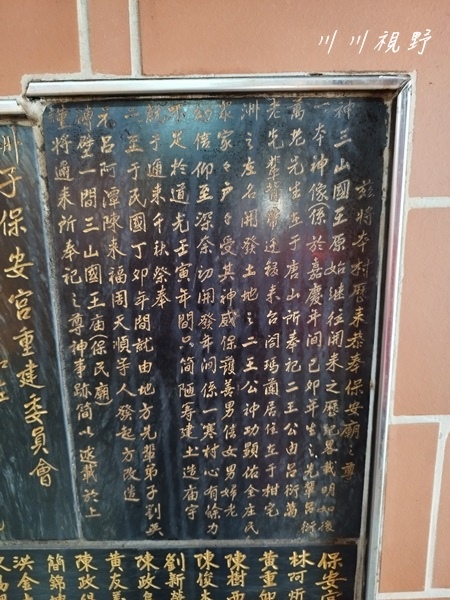 川川視野
茲將本村歷來恭奉保安廟之尊
神三山國王原始継往開來之歷記畧載明如後
一本神像係於嘉慶年間己卯年生之先輩呂衍
萬老先生在于唐山所奉祀二王公由呂衍萬
老先輩帶迁移來台
居住在于柑宅
洲之庄名開發土地之二王公神功顯佑全庄民
家家戶戶受其神威保護善男信女男婦老
幼信仰至深余切開發年间係一寒村心有餘力
不足於道光壬寅年間只簡陋筹建土造庙宇
于迺來千秋祭奉
至于民國丁卯年間就由地方先輩弟子劉
元呂阿潭陳來福周天順等人發起方改造
磚壁一間三山國王庙保民
里將過來所奉祀之尊神事跡簡以遂載於上
子保安宮重建委員會
保安宮
林阿炘
黃重
陳樹
陳俊
劉新
陳政
黃友
陳政
簡錦
洪金